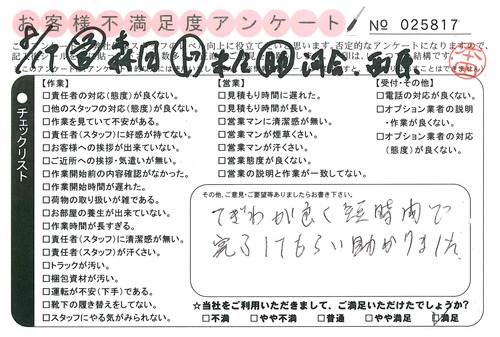 お客様不満足度アンケート
No 025817
チェックリスト
【作業】
□責任者の対応(態度)が良くない。
□他のスタッフの対応(態度)が良くない。
□作業を見ていて不安がある。
□責任者(スタッフ)に好感が持てない。
□お客様への挨拶が出来ていない。
□ご近所への挨拶・気遣いが無い。
□作業開始前の内容確認がなかった。
□作業開始時間が遅れた。
□荷物の取り扱いが雑である。
□お部屋の養生が出来ていない。
□作業時間が長すぎる。
□責任者(スタッフ)に清潔感が無い。
□責任者(スタッフ)が汗くさい。
□トラックが汚い。
□梱包資材が汚い。
□運転が不安(下手)である。
□靴下の履き替えをしてない。
□スタッフにやる気がみられない。
【営業】
□見積もり時間に遅れた。
□見積もり時間が長い。
□営業マンに清潔感が無い。
□営業マンが煙草くさい。
□営業マンが汗くさい。
□営業態度が良くない。
□営業の説明と作業が一致してない。
【受付・その他】
□電話の対応が良くない。
□オプション業者の説明
・作業が良くない。
□オプション業者の対応
(態度)が良くない。
その他、ご意見・ご要望等ありましたらお書き下さい。
てぎわが良く短時間で
完了してもらい助かりました
☆当社をご利用いただきまして、ご満足いただけたでしょうか?
□不満 □やや不満 □普通 □やや満足 □満足